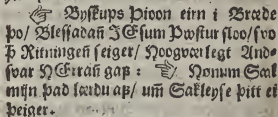 ☞ Byſkups Þioon eirn i Brœde
þo/ Bleſſadañ JEſum Pwſtur ſloo/ ſvo
Þ Ritningeñ ſeiger/ Hoogværlegt And-
ſvar HErrañ gaf: ☞ Honum Scal
mijn pad lærdu af/ um̃ Sakleyſe þitt ei
þeiger.